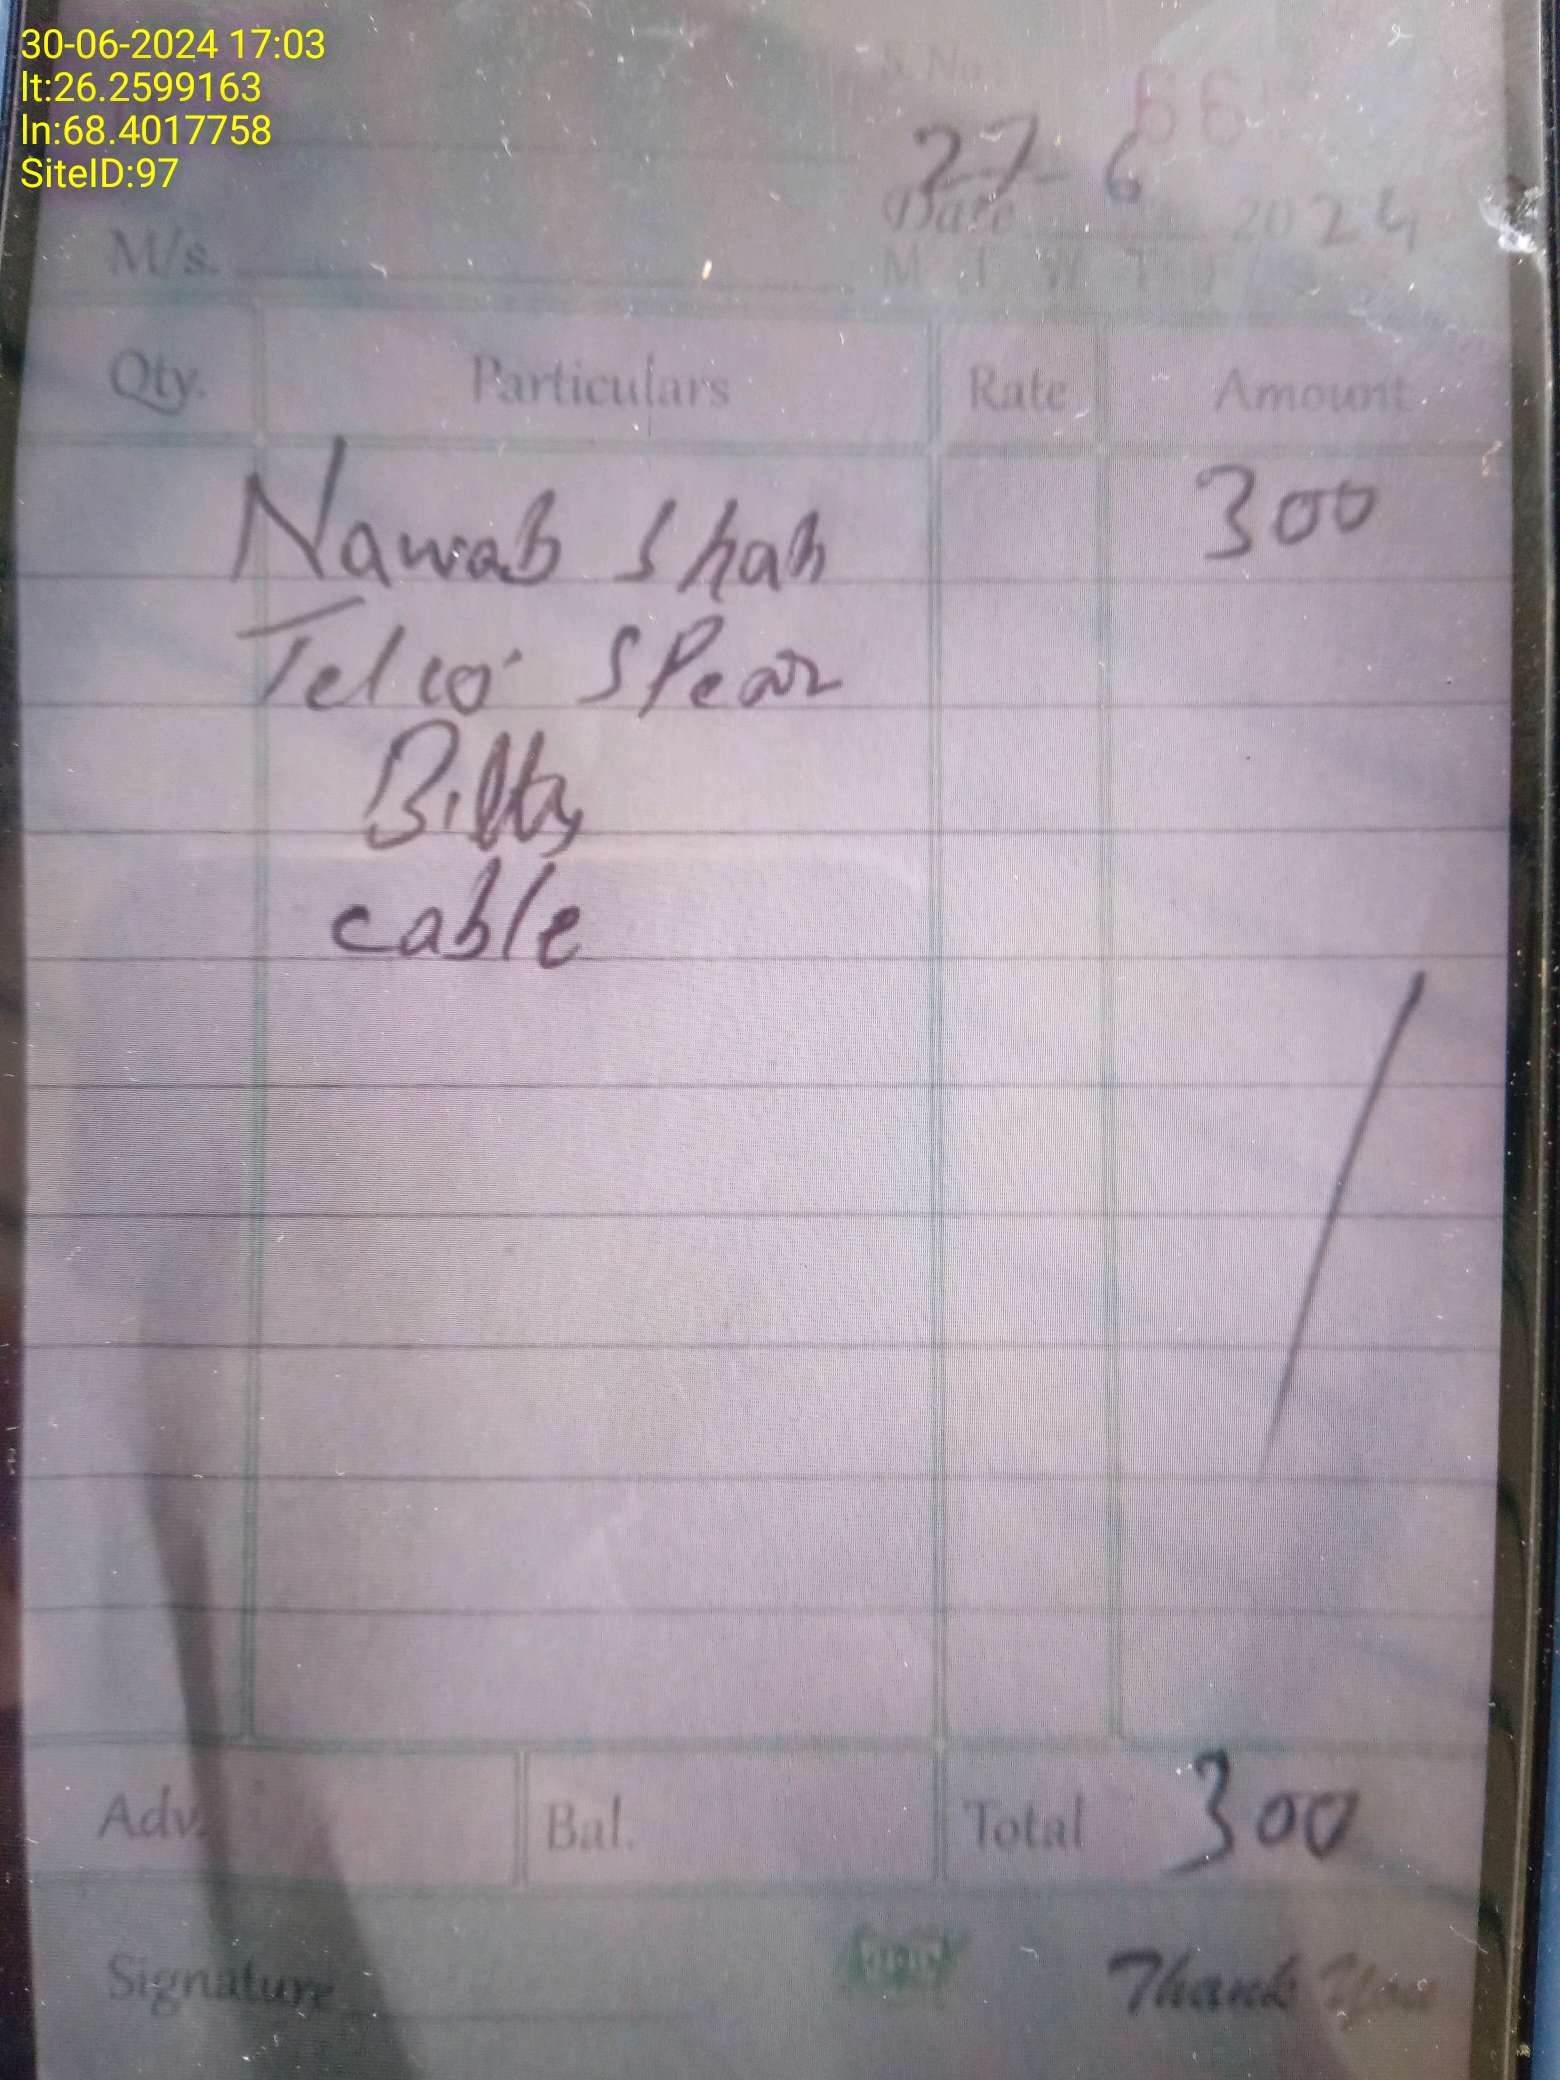 30-06-2024 17:03
lt:26.2599163
ln:68.4017758
SiteID:97
S.No. 66
27-6
Date 2024
M/s.
M T W T F S
Qty. Particulars Rate Amount
Nawab Shah 300
Telco SPear
Bilty
cable
Adv. Bal. Total 300
Signature Thank You